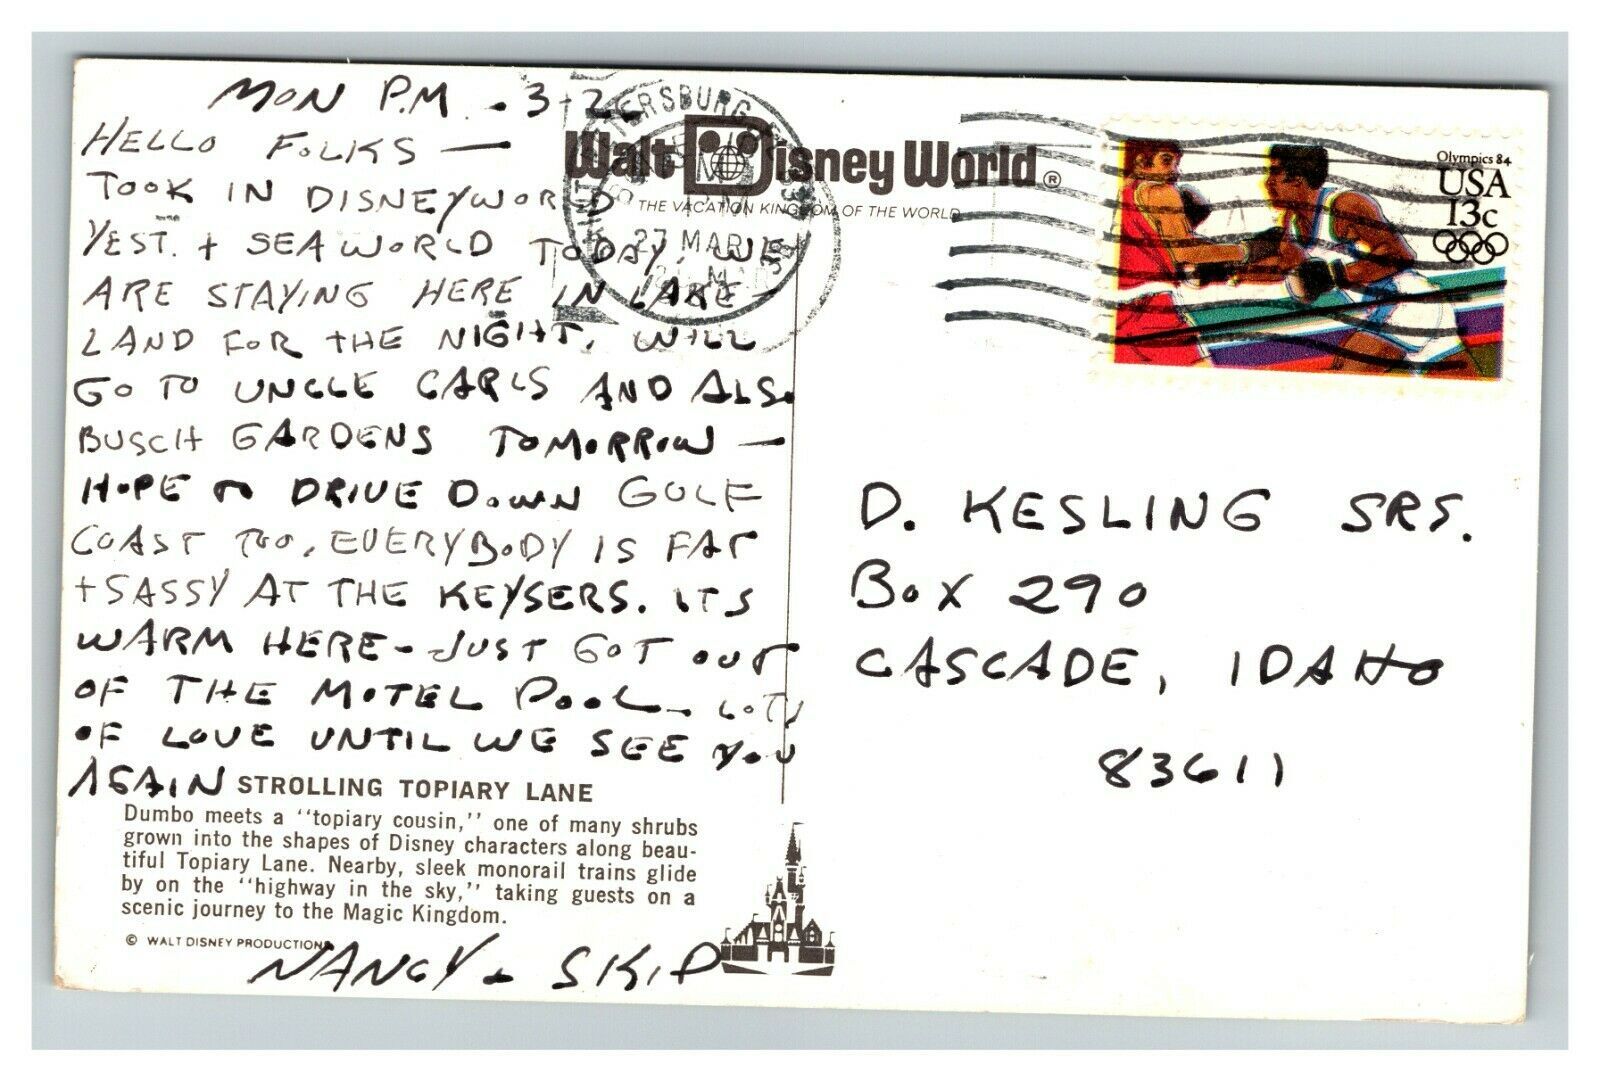 MON P.M. - 3-2
HELLO FOLKS —
TOOK IN DISNEYWORLD
YEST. + SEAWORLD TODAY, WE
ARE STAYING HERE IN LAKE-
LAND FOR THE NIGHT. WILL
GO TO UNCLE CARLS AND ALSO
BUSCH GARDENS TOMORROW —
HOPE TO DRIVE DOWN GULF
COAST TOO, EVERYBODY IS FAT
+ SASSY AT THE KEYSERS. ITS
WARM HERE - JUST GOT OUT
OF THE MOTEL POOL - LOTS
OF LOVE UNTIL WE SEE YOU
AGAIN
STROLLING TOPIARY LANE
Dumbo meets a "topiary cousin," one of many shrubs
grown into the shapes of Disney characters along beau-
tiful Topiary Lane. Nearby, sleek monorail trains glide
by on the "highway in the sky," taking guests on a
scenic journey to the Magic Kingdom.
© WALT DISNEY PRODUCTIONS
NANCY + SKIP
Walt Disney World®
THE VACATION KINGDOM OF THE WORLD
SAINT PETERSBURG
27 MAR
Olympics 84
USA
13c
D. KESLING SRS.
BOX 290
CASCADE, IDAHO
83611